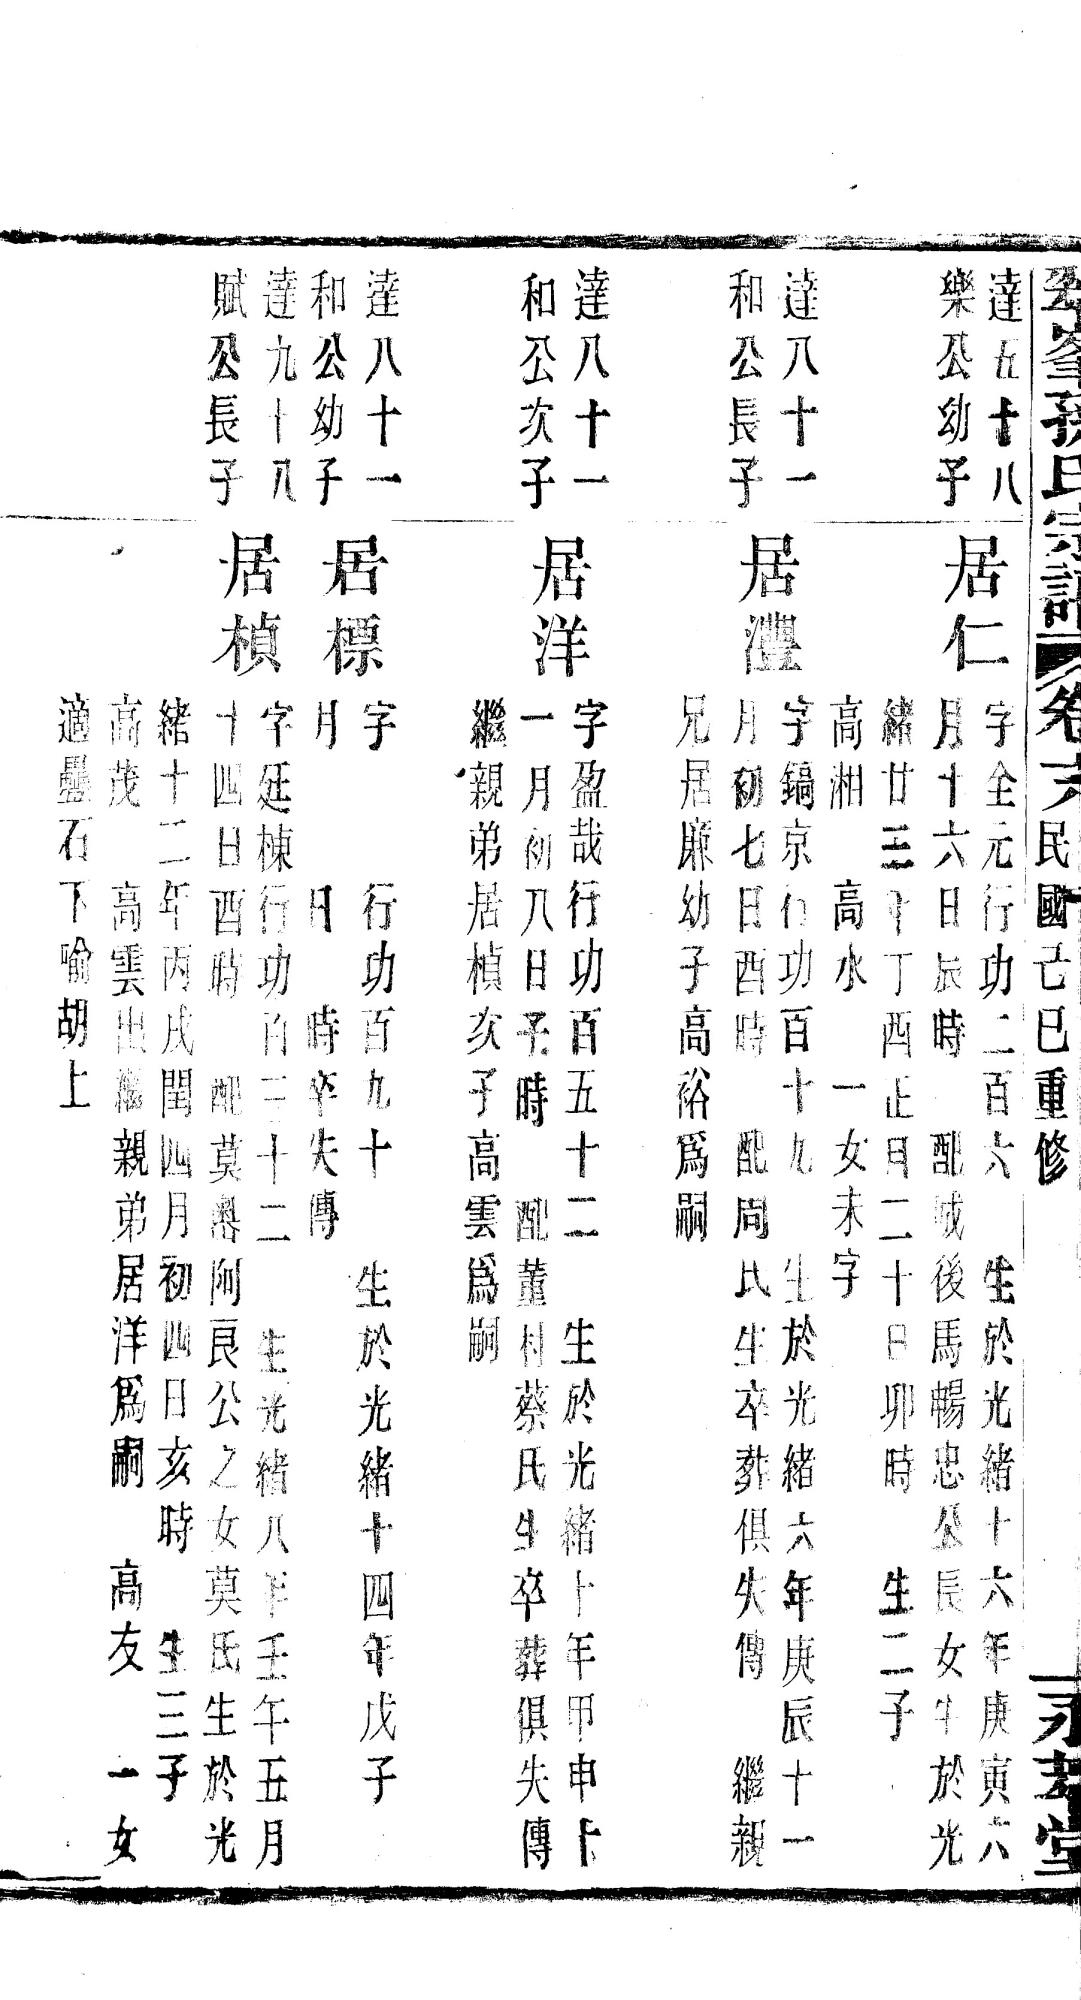 峯孫氏宗譜 卷六 民國己巳重修 永堂
達五十八
樂公幼子
居仁
字全元行功二百六 生於光緒十六年庚寅六
月十六日辰時 配城後馬暢忠公長女生於光
緒廿三年丁酉正月二十日卯時 生二子
高湘 高水 一女未字
達八十一
和公長子
居灃
字鎬京行功百十九 生於光緒六年庚辰十一
月初七日酉時 配周氏生卒葬俱失傳 繼親
兄居廉幼子高裕爲嗣
達八十一
和公次子
居洋
字盈哉行功百五十二 生於光緒十年甲申十
一月初八日子時 配董村蔡氏生卒葬俱失傳
繼親弟居楨次子高雲爲嗣
達八十一
和公幼子
居標
字 行功百九十 生於光緒十四年戊子
月 日 時卒失傳
達九十八
賦公長子
居楨
字廷棟行功百三十二 生光緒八年壬午五月
十四日酉時 配莫嶴阿良公之女莫氏生於光
緒十二年丙戌閏四月初四日亥時 生三子
高茂 高雲出繼親弟居洋爲嗣 高友 一女
適疊石下喻胡上